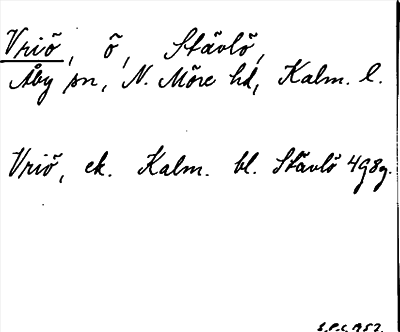 Vriö, ö, Stävlö,
Åby sn, N. Möre hd, Kalm. l.
Vriö, ek. Kalm. bl. Stävlö 4G8g.